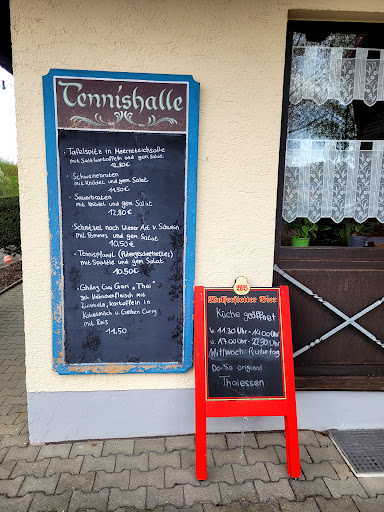 Tennishalle
· Tafelspitz in Meerrettichsoße
mit Salzkartoffeln und gem. Salat
12,80€
· Schweinebraten
mit Knödel und gem. Salat
11,50€
· Sauerbraten
mit Knödel und gem. Salat
12,80€
· Schnitzel nach Wiener Art v. Schwein
mit Pommes und gem. Salat
10,50€
· Tennispfandl
mit Spätzle und gem. Salat
10,50€
· Gäng Gai Gari "Thai"
geb. Hähnchenfleisch mit
Zwiebeln, Kartoffeln in
Kokosmilch u. Gelben Curry
mit Reis
11,50
Wolferstetter Bier
Küche geöffnet
v. 11.30 Uhr - 14.00 Uhr
u. 17.00 Uhr - 21.30 Uhr
Mittwoch: Ruhetag
Do-So original
Thaiessen